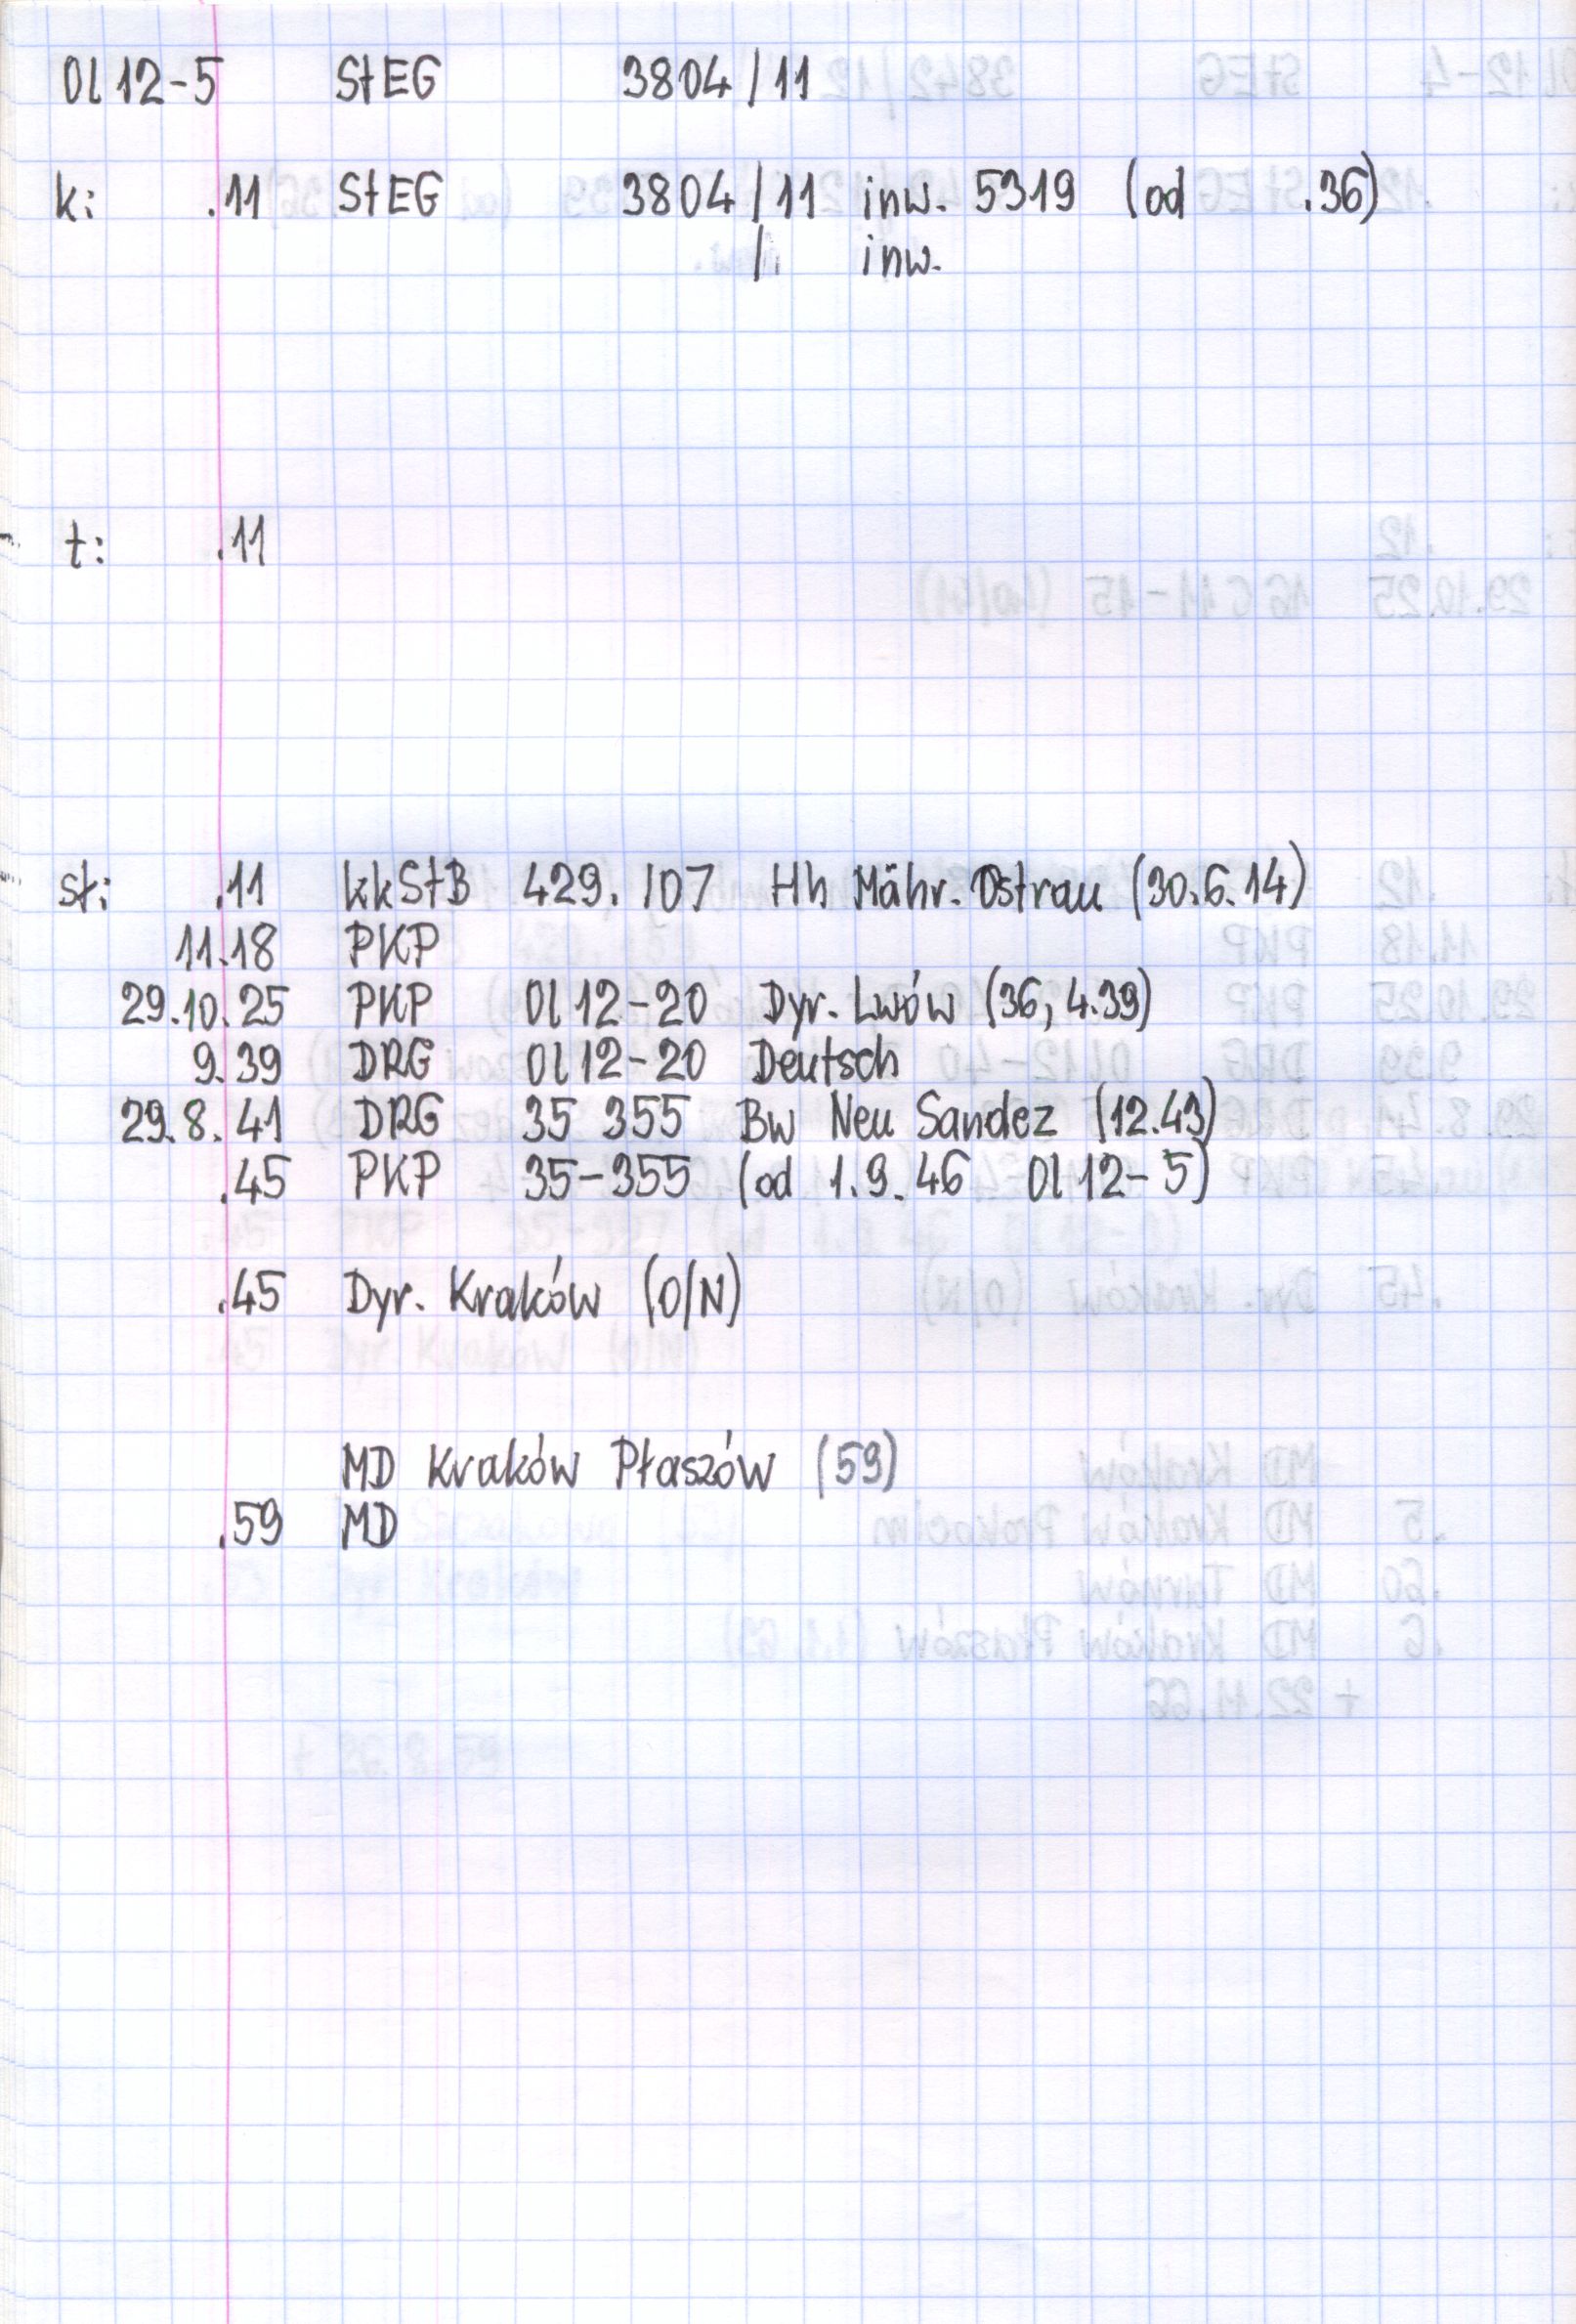 Ol 12-5 StEG 3804/11
k: .11 StEG 3804/11 inw. 5319 (od .36)
/. inw.
t: .11
st: .11 kkStB 429.107 Hh Mähr. Ostrau (30.6.14)
11.18 PKP
29.10.25 PKP Ol 12-20 Dyr. Lwów (36, 4.39)
9.39 DRG Ol 12-20 Deutsch
29.8.41 DRG 35 355 Bw Neu Sandez (12.43)
.45 PKP 35-355 (od 1.9.46 Ol 12-5)
.45 Dyr. Kraków (O/N)
MD Kraków Płaszów (59)
.59 MD